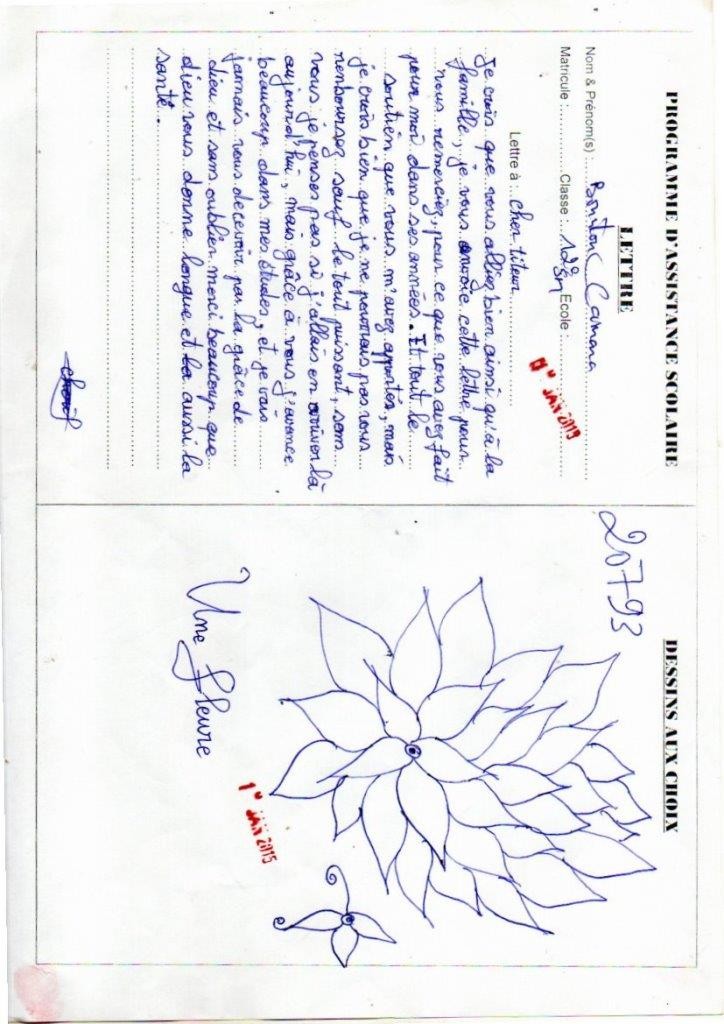 PROGRAMME D'ASSISTANCE SCOLAIRE
LETTRE
Nom & Prénom(s) : Camara
Matricule : Classe : 12e SM Ecole :
Lettre à : cher titeur
JAN 2019
Je crois que vous alliez bien ainsi qu'à la
famille, je vous envoie cette lettre pour
vous remerciez, pour ce que vous avez fait
pour moi dans ses années. Et tout le
soutien que vous m'avez apportés, mais
je crois bien que je ne pourrais pas vous
remboursez sauf le tout puissant, sans
vous je penses pas si j'allais en arriver là
aujourd'hui, mais grâce à vous j'avance
beaucoup dans mes études, et je vais
jamais vous decevoir par la grâce de
dieu et sans oublier merci beaucoup que
dieu vous donne longue et la aussi la
santé.
DESSINS AUX CHOIX
20793
Une fleure
JAN 2015